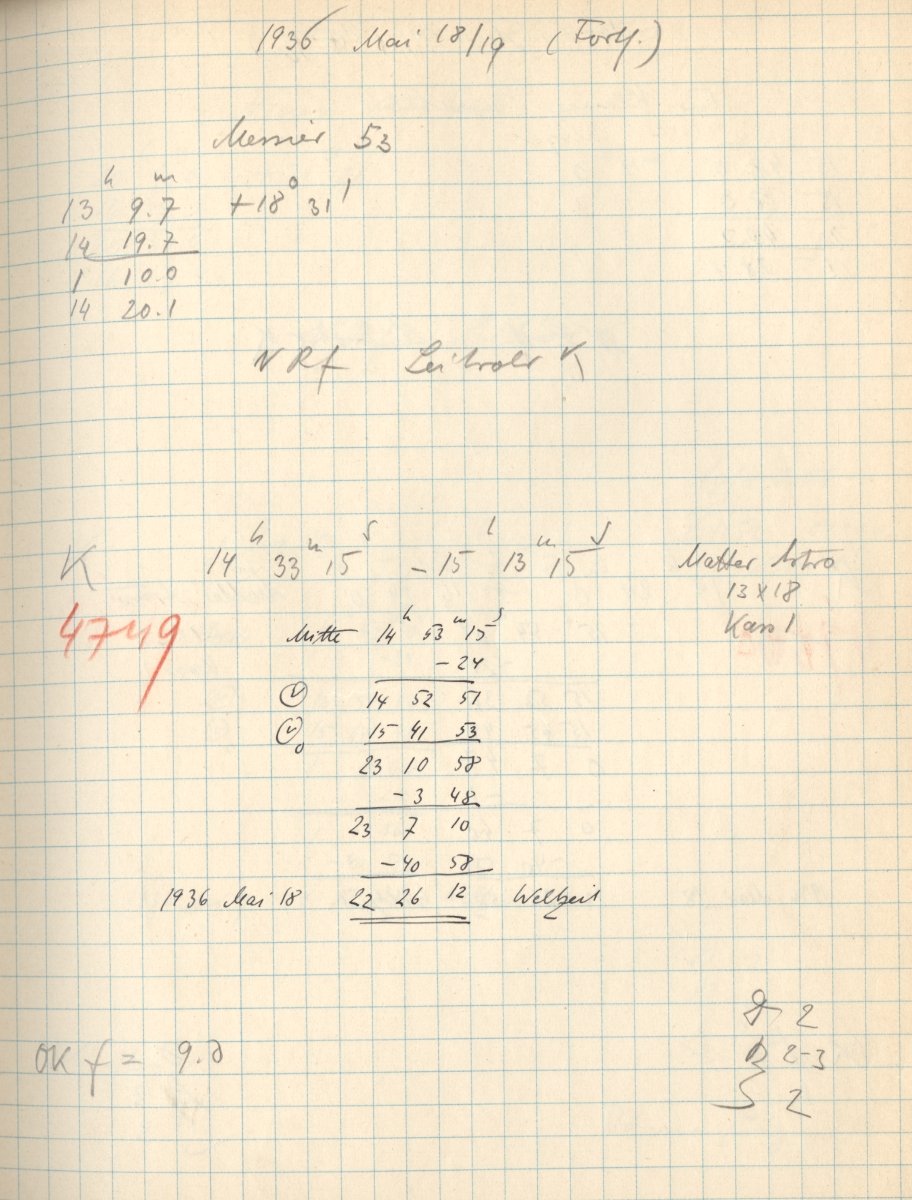 1936 Mai 18/19 (Forts.)
Messier 53
h m
13 9.7 +18° 31'
14 19.7
1 10.0
14 20.1
NRf Leitrohr K
K 14h 33m 15s – 15h 13m 15s Matter Astro
13 x 18
4749 Kass 1
Mitte 14h 53m 15s
– 24
14 52 51
15 41 53
23 10 58
– 3 48
23 7 10
– 40 58
1936 Mai 18 22 26 12 Weltzeit
2
OK f = 9.0 2-3
2